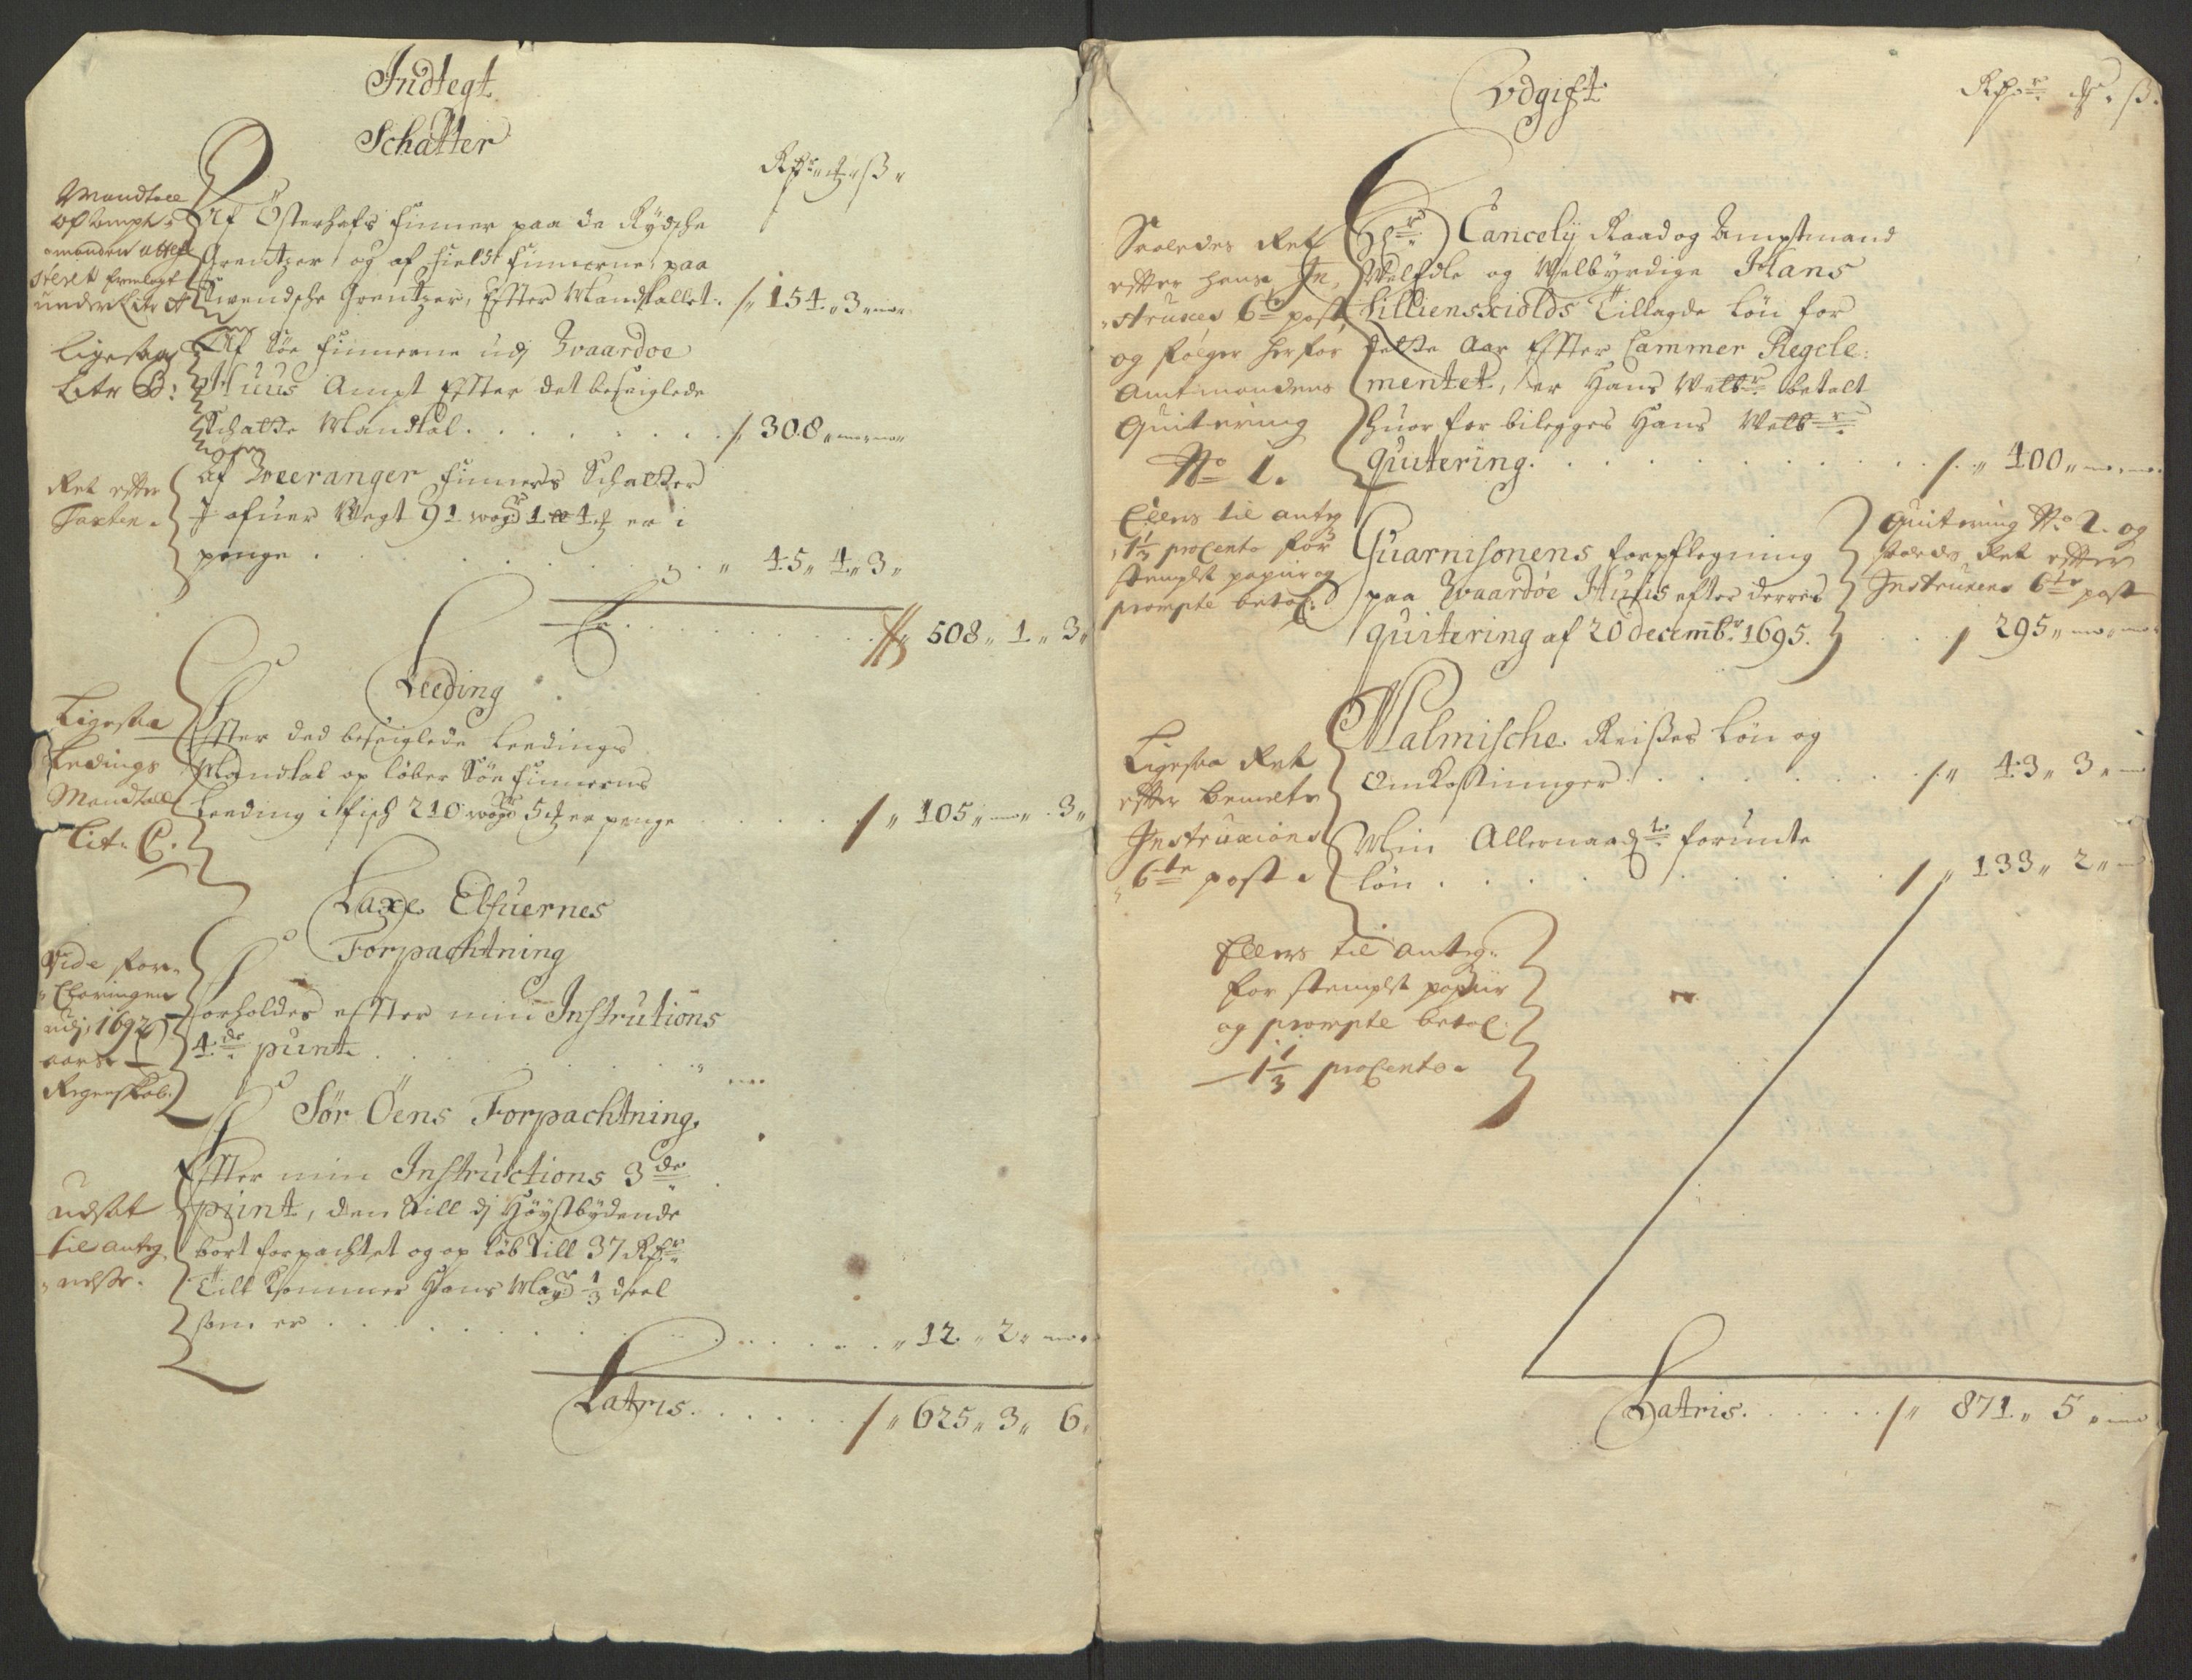 Indtegt
Schatter
Rdr. # ß
Mandtall
under Litr A
Af Österhafs finner paa de Rydsche
Grentzer, og af field finnerne, paa
Swendsche Grentzer, Effter Mandtallet ./. 154 " 3 "
Ligesaa
Litr B:
Af Söe finnerne udj Wardoe
Huus Ampt Effter det beseiglede
Schatte Mandtal . . . . ./. 308 "
Ret effter
Taxten.
Af Weranger finners Schatter
J afuer Vegt 91 wog 1 # er i
penge . . . . " 45 " 4 " 3 "
Er . . . . 508 " 1 " 3 "
Leeding
Ligesaa
Ledings
Mandtall
Lit. C.
Effter ded beseiglede Leedings
Mandtal op löber Söe finnerns
Leeding i fisch 210 wog 5 # er penge . . . / " 105 " 3 "
Laxe Elfuernes
Forpachtning
Vide for-
Claringen
udj 1692
aars
Regenskab.
Forholdes effter min Instrutions
4de punt . . . .
Sör Öens Forpachtning.
udsat
til anteg
nelse.
Effter min Instructions 3de
punt, den till dj Höystbydende
bort forpachtet og op löb till 37 Rdr
Till kommer Hans Mayt 1/3 deel
som er . . . . " 12 " 2 "
Latris . . . . / " 625 " 3 " 6 "
Vdgift
Rdr # ß
Saaledes Ret
effter hans In-
struxes 6te post,
og fölger herfor
Amtmandens
Quitering
No 1.
Hr Cancely Raad og Amptmand
Welædle og Welbyrdige Hans
Lilliensciolds Tillagde Lön for
dette Aar Effter Cammer Regle:
mentet, er Hans Welbr betalt
huor for bilegges Hans Welbr
quitering. . . . . /. " 400 "
Ellers til anteg
1 1/3 proCento for
stemplet papiir og
prompte betal:
Guarnisonens forpflegning
paa Wardöe Huus efter derres
quitering af 20 decembr 1695.
Quitering No 2. og
saaledes Ret effter
Instruxens 6te post
. . . / 295 "
Ligesaa Ret
effter bemelte
Instruxions
6te post.
Malmische Reißes Lön og
Omkostninger . . . . ./. " 43 " 3 "
Min Allernaadte forundte
Lön . . . . / " 133 " 2 "
Ellers til anteg:
for stemplet papiir
og prompte betal:
1 1/3 proCento.
Latris. . . . . / " 871 " 5 "